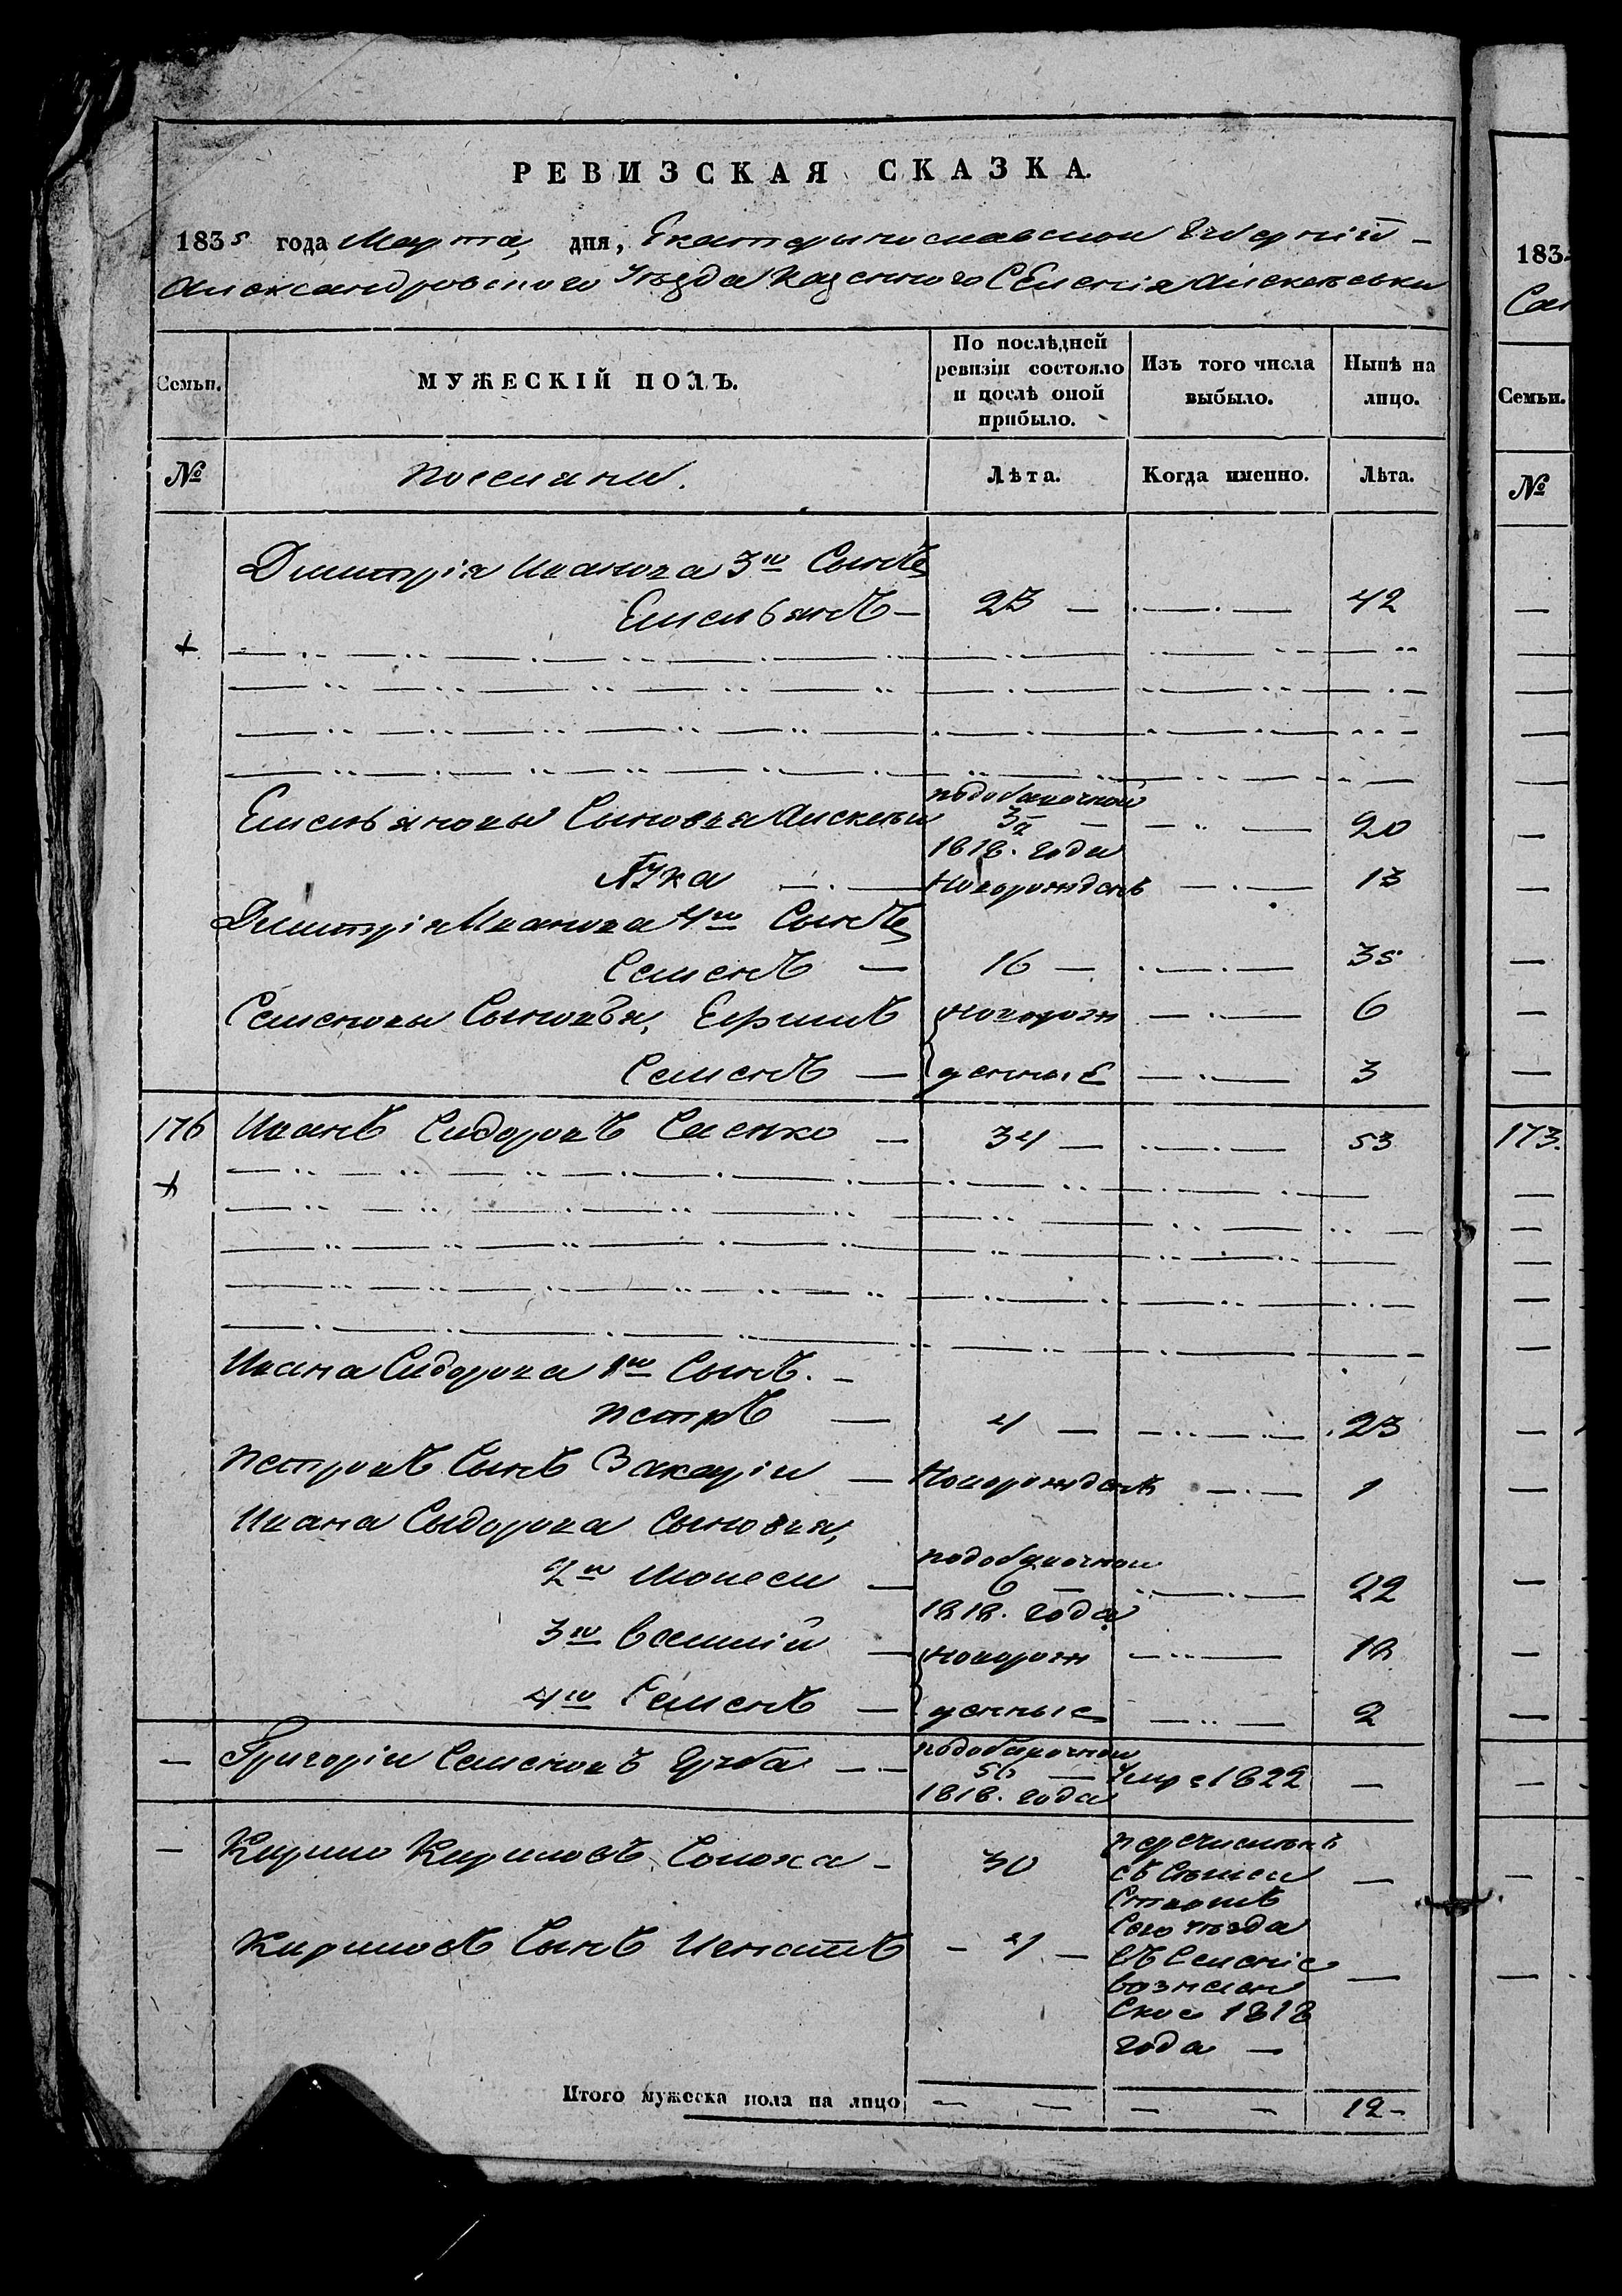 РЕВИЗСКАЯ СКАЗКА.
1835 года Марта, дня, Екатеринославской Губерніи
Александровского Уѣзда Казенного Селенія Алексѣевки
Семьи. МУЖЕСКІЙ ПОЛЪ. По послѣдней ревизіи состояло и послѣ оной прибыло. Изъ того числа выбыло. Нынѣ на лицо.
№ поселяни. Лѣта. Когда именно. Лѣта.
Дмитрія Иванова 3й Сынъ
Емельянъ — 23 — 42
+
Емельяновы Сыновья Алексѣй подобавочной 3й 1818. года 20
Лука новорожденъ 13
Дмитрія Иванова 4й Сынъ
Семенъ — 16 — 35
Семеновы Сыновья, Ефимъ новорож 6
Семенъ — денные 3
176 Иванъ Сидоровъ Саенко — 34 — 53
+
Ивана Сидорова 1й Сынъ. —
Петръ — 4 — 23
Петровъ Сынъ Захарій — новорожденъ 1
Ивана Сыдорова Сыновья,
2й Моисей — подобавочной 6 — 1818. года 22
3й Василій — новорож 12
4й Семенъ — денные 2
— Григорій Семеновъ — подобавочной 56 — 1818. года умре 1822 —
— Кирило Кириловъ, Солоха — 30 перечисленъ —
съ Семьи
Сего уѣзда
Кириловъ Сынъ Игнатъ — 4 — въ Селеніе —
Вознесен
ское 1818
года —
Итого мужеска пола на лицо — — — — 12 —
183
Семьи.
№
173.